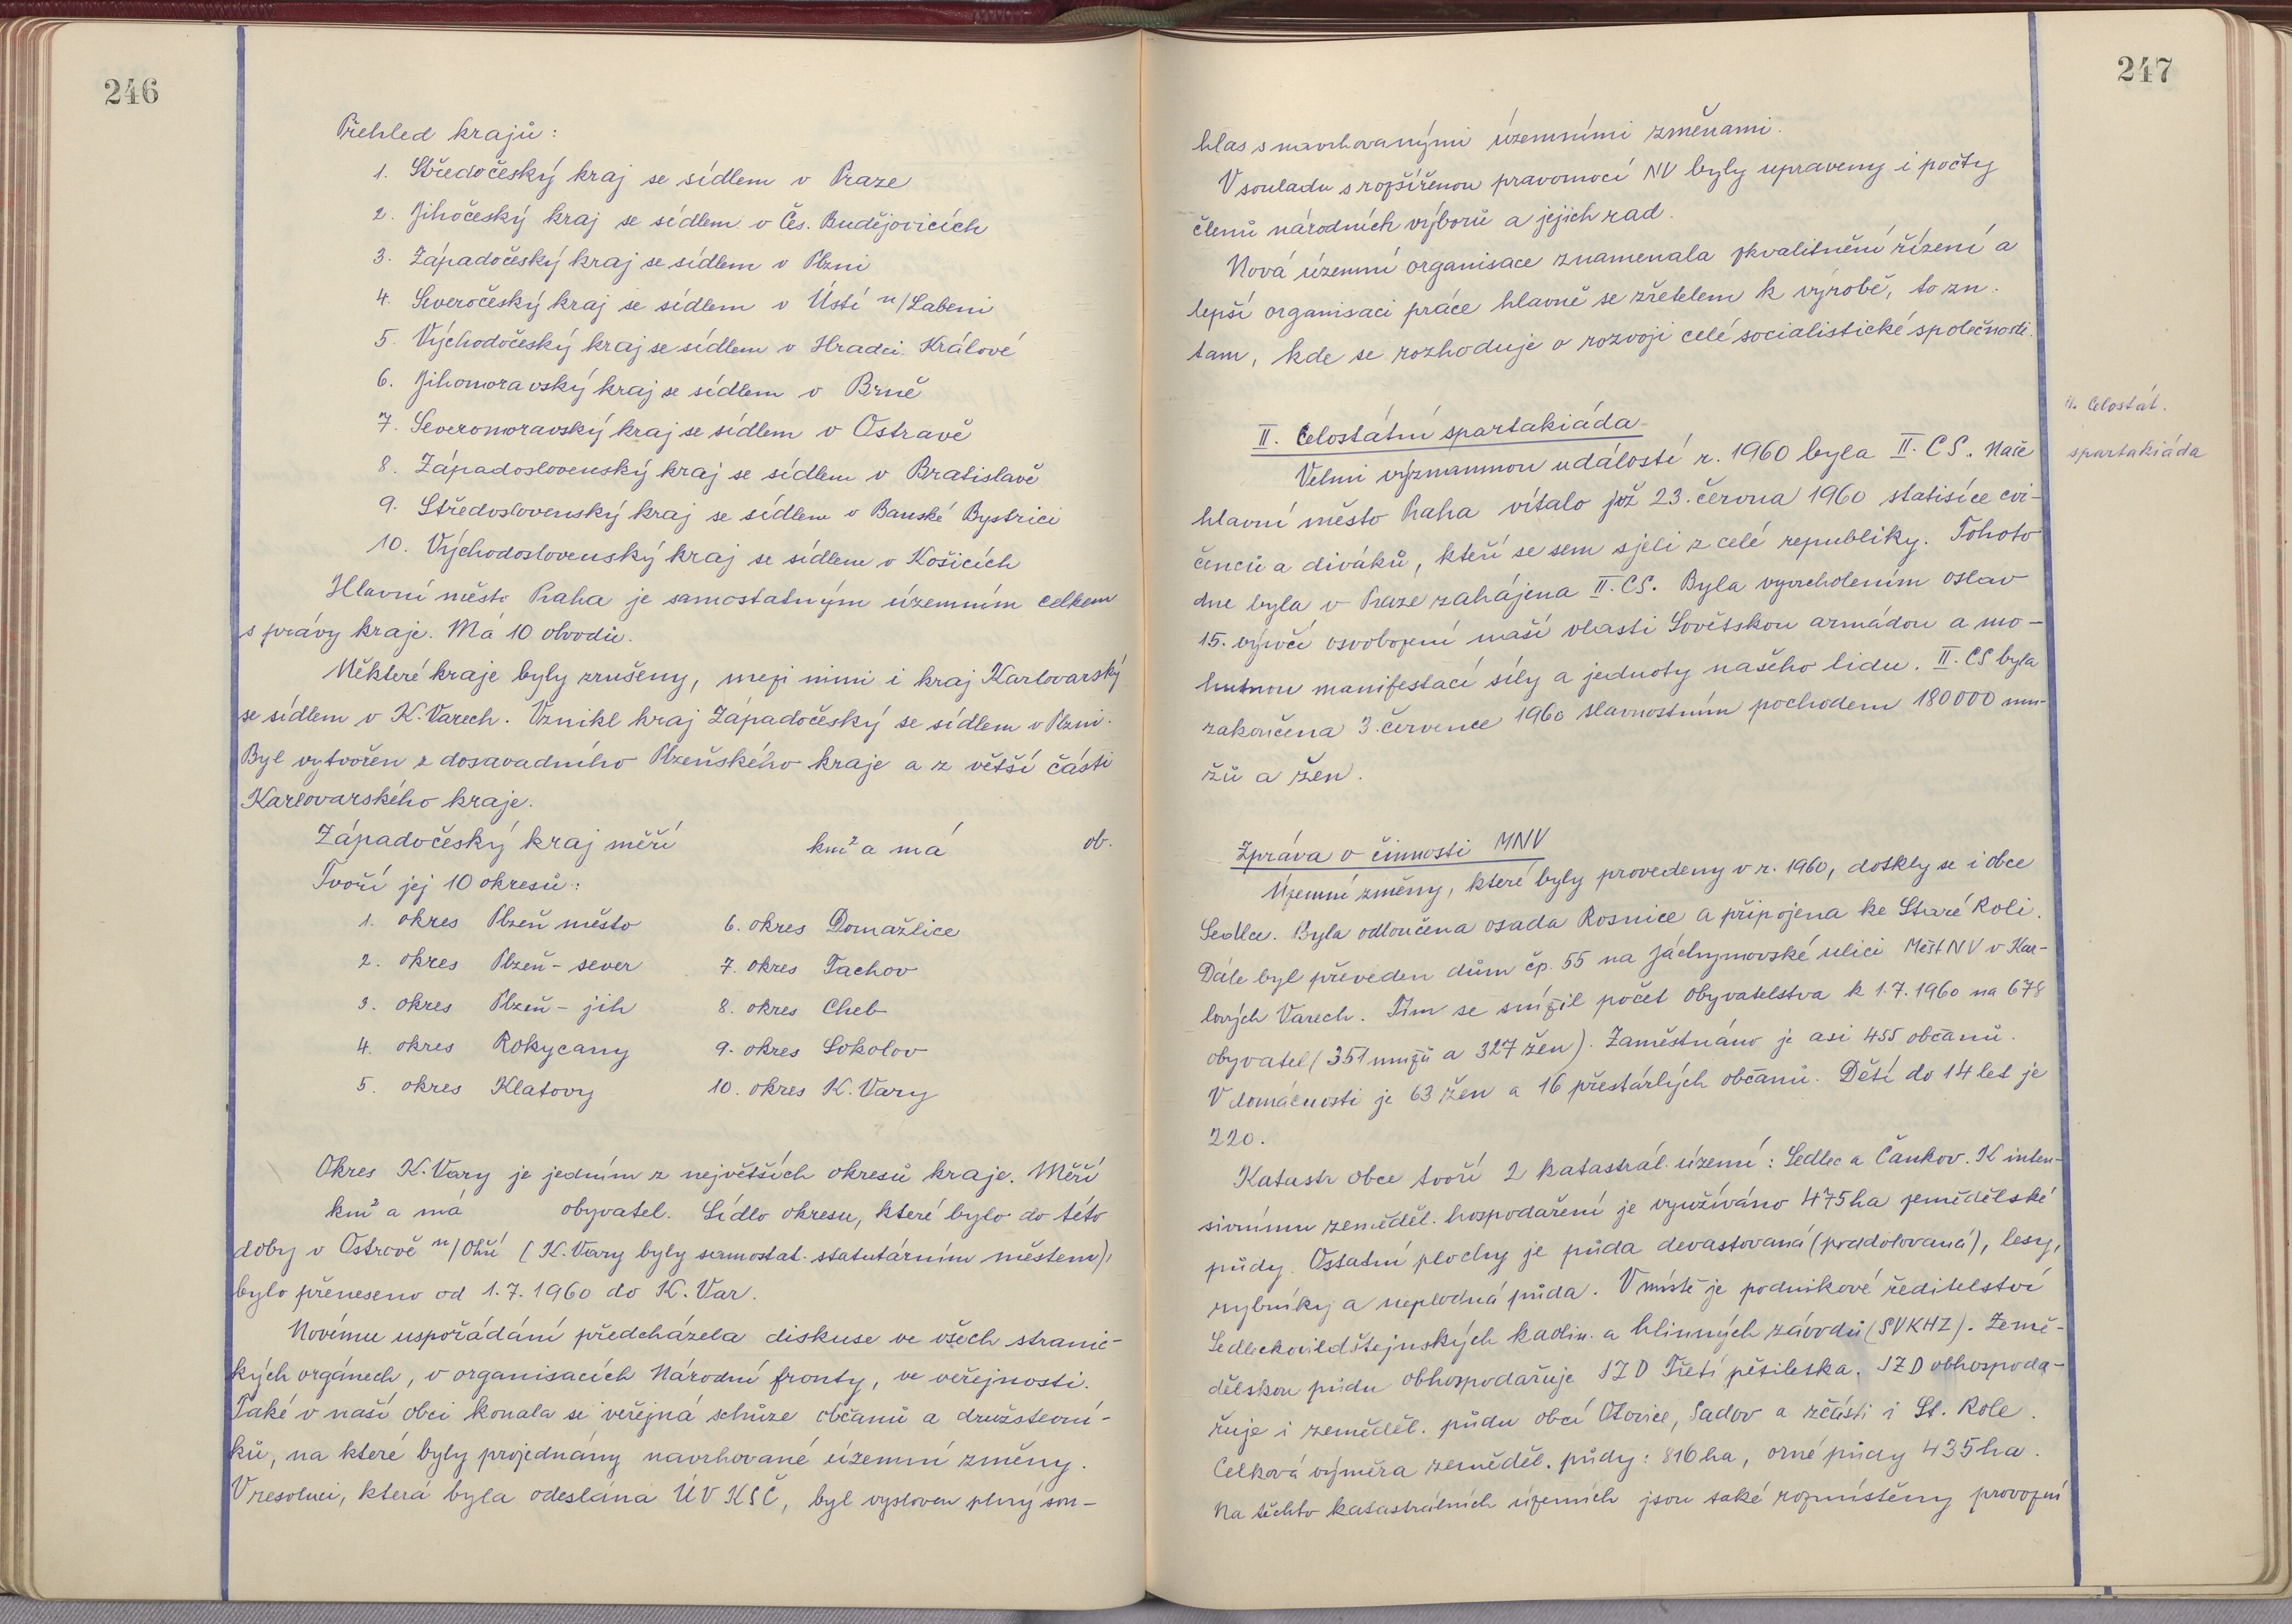 246
Přehled krajů:
1. Středočeský kraj se sídlem v Praze
2. Jihočeský kraj se sídlem v Čes. Budějovicích
3. Západočeský kraj se sídlem v Plzni
4. Severočeský kraj se sídlem v Ústí n/Labem
5. Východočeský kraj se sídlem v Hradci Králové
6. Jihomoravský kraj se sídlem v Brně
7. Severomoravský kraj se sídlem v Ostravě
8. Západoslovenský kraj se sídlem v Bratislavě
9. Středoslovenský kraj se sídlem v Banské Bystrici
10. Východoslovenský kraj se sídlem v Košicích
Hlavní město Praha je samostatným územním celkem
s právy kraje. Má 10 obvodů.
Některé kraje byly zrušeny, mezi nimi i kraj Karlovarský
se sídlem v K. Varech. Vznikl kraj Západočeský se sídlem v Plzni.
Byl vytvořen z dosavadního Plzeňského kraje a z větší části
Karlovarského kraje.
Západočeský kraj měří km² a má ob.
Tvoří jej 10 okresů:
1. okres Plzeň město 6. okres Domažlice
2. okres Plzeň - sever 7. okres Tachov
3. okres Plzeň - jih 8. okres Cheb
4. okres Rokycany 9. okres Sokolov
5. okres Klatovy 10. okres K. Vary
Okres K. Vary je jedním z největších okresů kraje. Měří
km² a má obyvatel. Sídlo okresu, které bylo do této
doby v Ostrově n/Ohří (K. Vary byly samostat. statutárním městem),
bylo přeneseno od 1.7.1960 do K. Var.
Novému uspořádání předcházela diskuse ve všech stranic-
kých orgánech, v organisacích Národní fronty, ve veřejnosti.
Také v naší obci konala se veřejná schůze občanů a družstevní-
ků, na které byly projednány navrhované územní změny.
V resoluci, která byla odeslána ÚV KSČ, byl vysloven plný sou-
247
hlas s navrhovanými územními změnami.
V souladu s rozšířenou pravomocí NV byly upraveny i počty
členů národních výborů a jejich rad.
Nová územní organisace znamenala zkvalitnění řízení a
lepší organisaci práce hlavně se zřetelem k výrobě, to zn.
tam, kde se rozhoduje o rozvoji celé socialistické společnosti.
II. Celostátní spartakiáda
II. Celostát.
spartakiáda
Velmi významnou událostí r. 1960 byla II. CS. Naše
hlavní město Praha vítalo již 23. června 1960 statisíce cvi-
čenců a diváků, kteří se sem sjeli z celé republiky. Tohoto
dne byla v Praze zahájena II. CS. Byla vyvrcholením oslav
15. výročí osvobození naší vlasti Sovětskou armádou a mo-
hutnou manifestací síly a jednoty našeho lidu. II. CS byla
zakončena 3. července 1960 slavnostním pochodem 180000 mu-
žů a žen.
Zpráva o činnosti MNV
Územní změny, které byly provedeny v r. 1960, dotkly se i obce
Sedlce. Byla odloučena osada Rosnice a připojena ke Staré Roli.
Dále byl převeden dům čp. 55 na Jáchymovské ulici Měst NV v Kar-
lových Varech. Tím se snížil počet obyvatelstva k 1.7.1960 na 678
obyvatel (351 mužů a 327 žen). Zaměstnáno je asi 455 občanů.
V domácnosti je 63 žen a 16 přestárlých občanů. Dětí do 14 let je
220.
Katastr obce tvoří 2 katastrál. území: Sedlec a Čankov. K inten-
sivnímu zeměděl. hospodaření je využíváno 475 ha zemědělské
půdy. Ostatní plochy je půda devastovaná (poddolovaná), lesy,
rybníky a neplodná půda. V místě je podnikové ředitelství
Sedleckovildštejnských kaolin. a hlinných závodů (SVKHZ). Země-
dělskou půdu obhospodařuje JZD Třetí pětiletka. JZD obhospoda-
řuje i zeměděl. půdu obcí Otovice, Sadov a zčásti i St. Role.
Celková výměra zeměděl. půdy: 816 ha, orné půdy 435 ha.
Na těchto katastrálních územích jsou také rozmístěny provozní